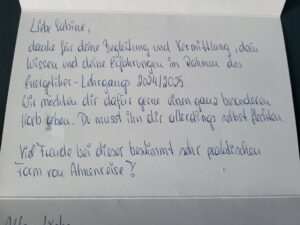 Liebe Sabine,
danke für deine Begleitung und Vermittlung, dein
Wissen und deine Erfahrungen im Rahmen des
Energetiker-Lehrgangs 2024/2025.
Wir möchten dir dafür gerne einen ganz besonderen
Korb geben. Du musst ihn dir allerdings selbst flechten.
Viel Freude bei dieser bestimmt sehr praktischen
Form von Ahnenreise!